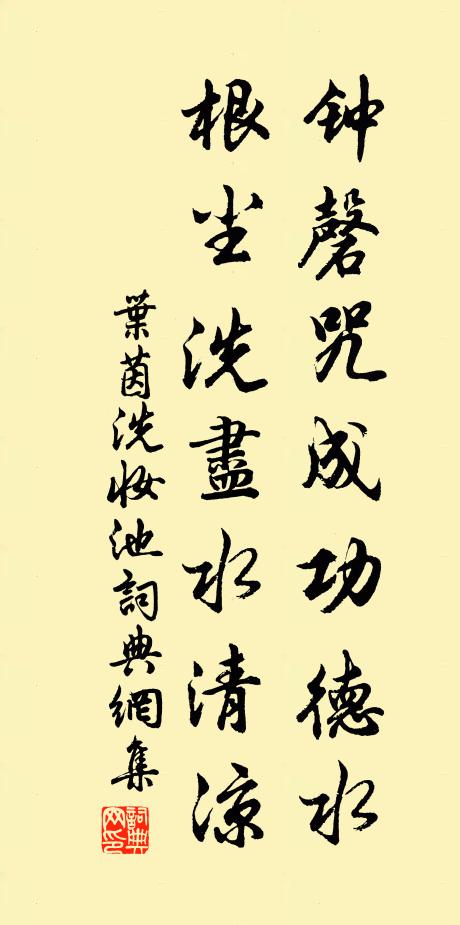 钟磬咒成功德水
根尘洗盡水清凉
葉茵洗妝池詞典網集
詞典網印